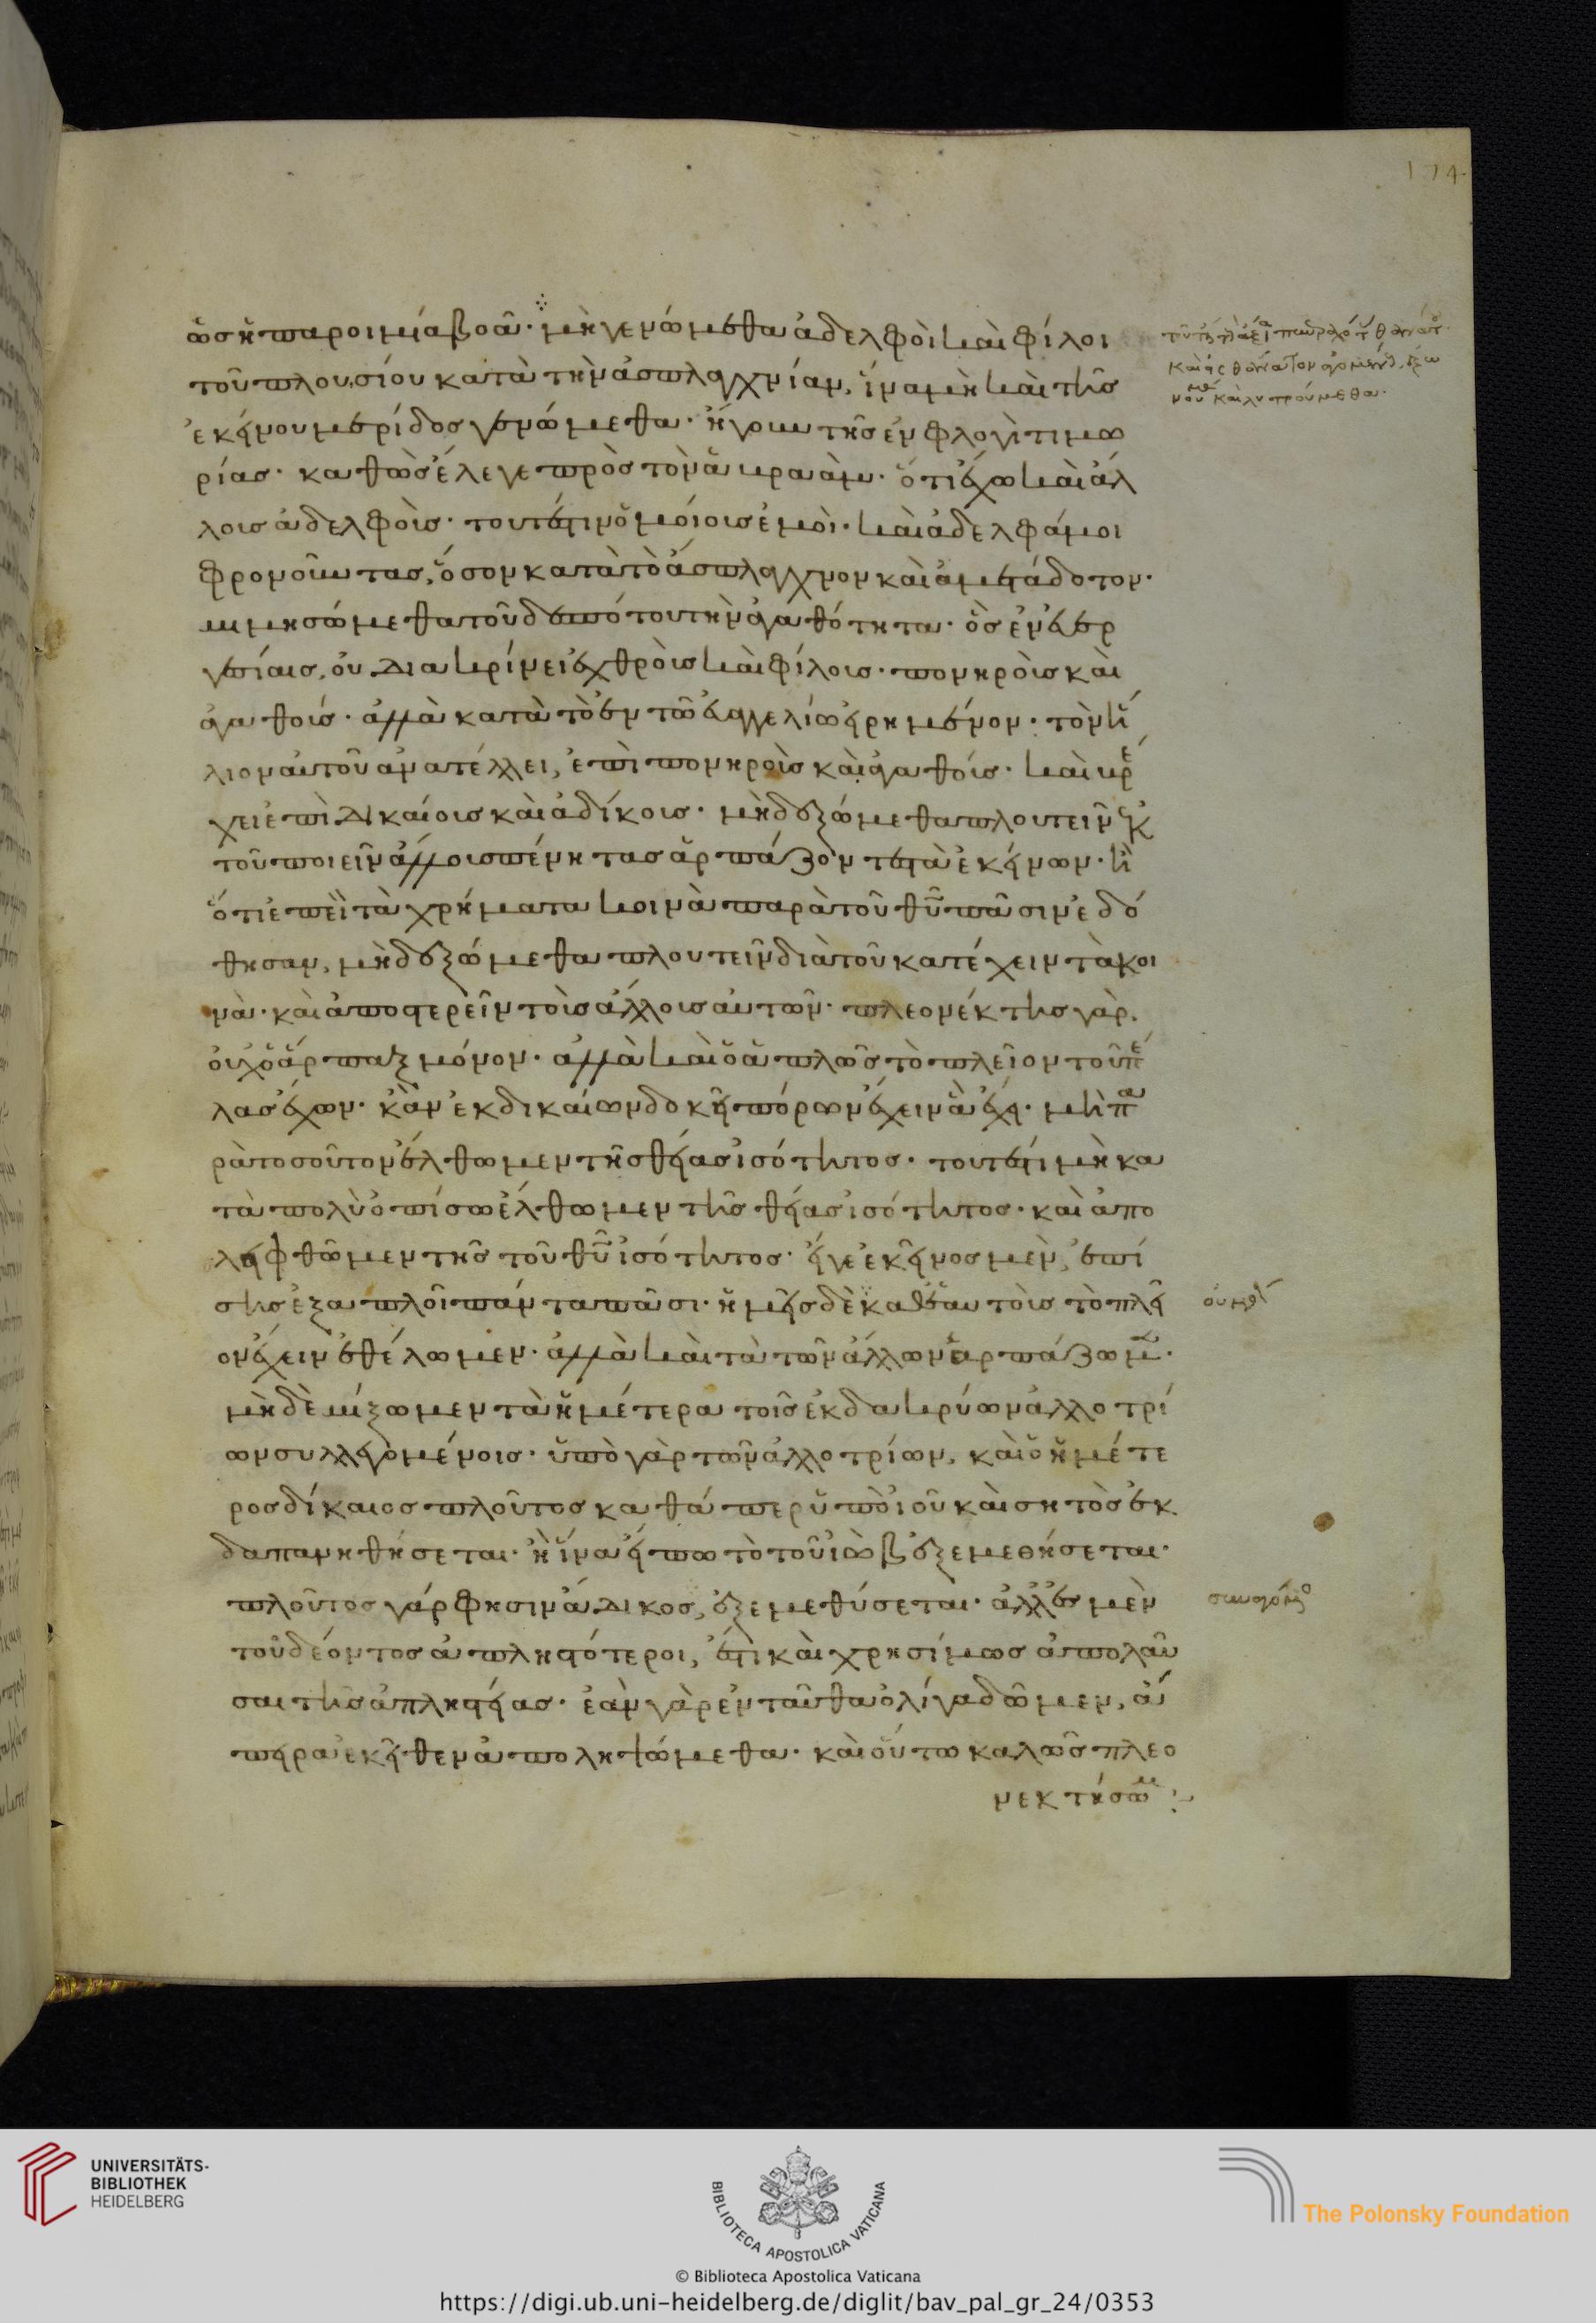 174
ὡς ἡ παροιμία βοᾷ· μὴ γενώμεθα ἀδελφοὶ καὶ φίλοι
τοῦ πλουσίου κατὰ τὴν ἀσπλαχνίαν, ἵνα μὴ καὶ τῆς
ἐκείνου μερίδος γενώμεθα· ἤγουν τῆς ἐν φλογὶ τιμω
ρίας· καθὼς ἔλεγε πρὸς τὸν ἀβραάμ· ὅτι ἔχω καὶ ἀλ
λους ἀδελφοὺς· τουτέστιν ὁμοίους ἐμοὶ· καὶ ἀδελφά μοι
φρονοῦντας, ὅσον κατὰ τὸ ἄσπλαχνον καὶ ἀμετάδοτον·
μιμησώμεθα τοῦ δεσπότου τὴν ἀγαθότητα· ὃς ἐν εὐερ
γεσίαις, οὐ διακρίνει ἐχθροὺς καὶ φίλους· πονηροὺς καὶ
ἀγαθούς· ἀλλὰ κατὰ τὸ ἐν τῷ εὐαγγελίῳ εἰρημένον· τὸν ἥ
λιον αὐτοῦ ἀνατέλλει, ἐπὶ πονηροὺς καὶ ἀγαθούς· καὶ βρέ
χει ἐπὶ δικαίους καὶ ἀδίκους· μὴ δεξώμεθα πλουτεῖν ἐκ
τοῦ ποιεῖν ἄλλους πένητας ἁρπάζοντες τὰ ἐκείνων· ἢ
ὅτι ἐπεὶ τὰ χρήματα κοινὰ παρὰ τοῦ θῦ πᾶσιν ἐδό
θησαν, μὴ δεξώμεθα πλουτεῖν διὰ τοῦ κατέχειν τὰ κοι
νὰ· καὶ ἀποστερεῖν τοὺς ἄλλους αὐτῶν· πλεονέκτης γὰρ
οὐχ ὁ ἅρπαξ μόνον· ἀλλὰ καὶ ὁ ἁπλῶς τὸ πλεῖον τοῦ πέ
λας ἔχων· κἂν ἐκ δικαίων δοκῇ πόρων ἔχειν ἃ ἔχει· μὴ πα
ρὰ τοσοῦτον ἔλθωμεν τῆς θείας ἰσότητος· τουτέστι μὴ κα
τὰ πολὺ ὀπίσω ἔλθωμεν τῆς θείας ἰσότητος· καὶ ἀπο
λειφθῶμεν τῆς τοῦ θῦ ἰσότητος· εἴγε ἐκεῖνος μὲν, ἐπί
σης ἐξαπλοῖ πάντα πᾶσι· ἡμεῖς δὲ καθ' ἑαυτοὺς τὸ πλεῖ
ον ἔχειν ἐθέλωμεν· ἀλλὰ καὶ τὰ τῶν ἄλλων ἁρπάζωμεν·
μὴ δὲ μίξωμεν τὰ ἡμέτερα τοῖς ἐκ δακρύων ἀλλοτρί
ων συλλεγομένοις· ὑπὸ γὰρ τῶν ἀλλοτρίων, καὶ ὁ ἡμέτε
ρος δίκαιος πλοῦτος καθάπερ ὑπὸ ἰοῦ καὶ σητὸς ἐκ
δαπανηθήσεται· ἢ ἵνα εἴπω τὸ τοῦ ἰὼβ ἐξεμεθήσεται·
πλοῦτος γάρ φησιν ἄδικος, ἐξεμεθύσεται· ἀλλ' ἐσμὲν
τοῦ δέοντος ἀπληστότεροι, ἔστι καὶ χρησίμως ἀπολαῦ
σαι τῆς ἀπληστείας· ἐὰν γὰρ ἐνταῦθα ὀλίγα δῶμεν, ἄ
πειρα ἐκεῖθεν ἀποληψώμεθα· καὶ οὕτω καλῶς πλεο
νεκτήσωμεν
UNIVERSITÄTS-
BIBLIOTHEK
HEIDELBERG
BIBLIOTECA APOSTOLICA VATICANA
The Polonsky Foundation
© Biblioteca Apostolica Vaticana
https://digi.ub.uni-heidelberg.de/diglit/bav_pal_gr_24/0353